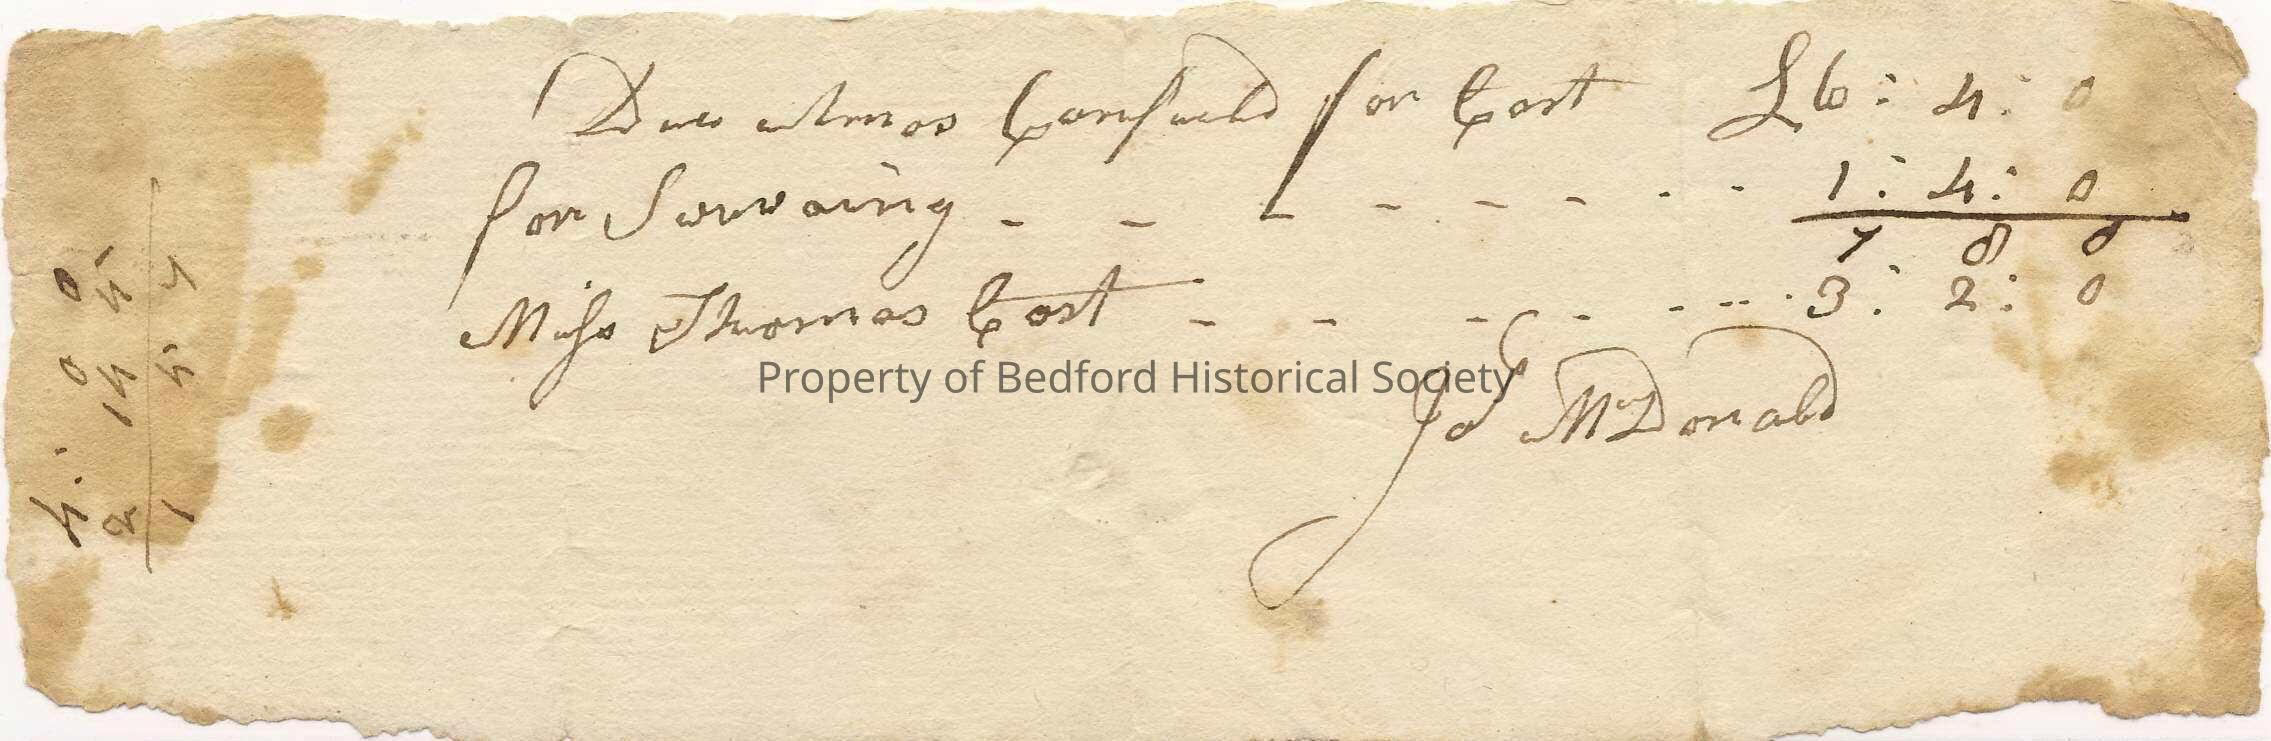 Due Amos Canfield for Cost £6 : 4 : 0
for Survaing - - - - - - - - 1 : 4 : 0
7 8 0
Miss Thomas Cost - - - - - - - 3 : 2 : 0
Property of Bedford Historical Society
Jas McDonald